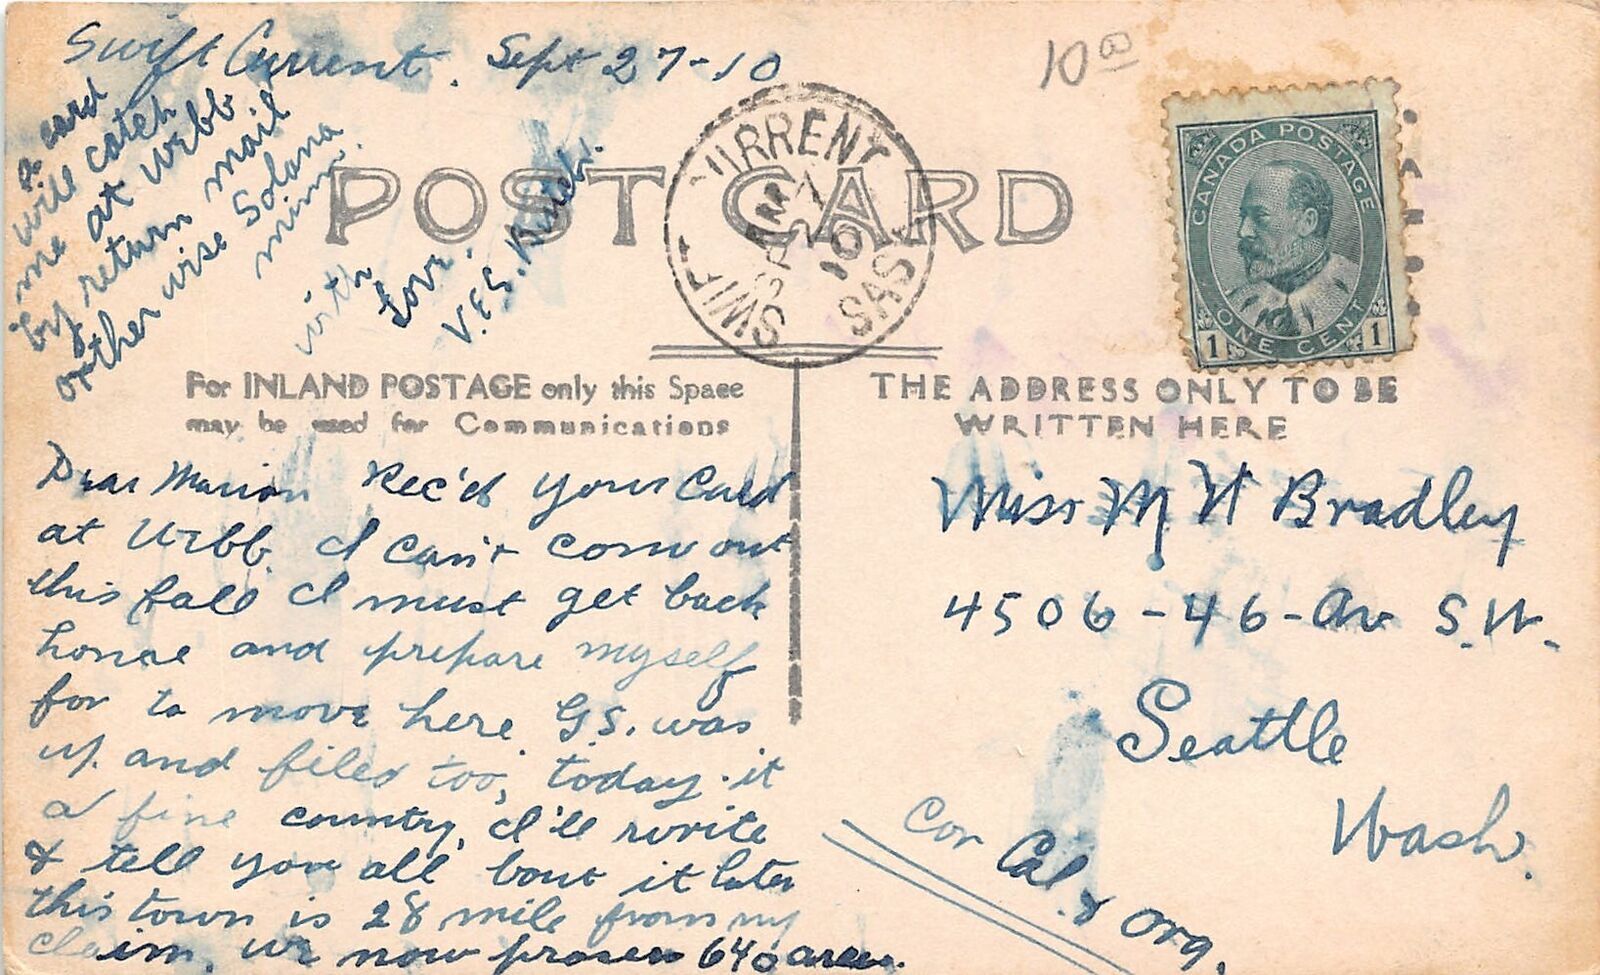 Swift Current. Sept 27-10
10 00
a card
will catch
me at Webb
by return mail
other wise Solana
minn.
with
Love.
V.E.S.
POST CARD
SWIFT CURRENT
AM
10
SASK
CANADA POSTAGE
ONE CENT
1 1
For INLAND POSTAGE only this Space
may be used for Communications
THE ADDRESS ONLY TO BE
WRITTEN HERE
Dear Marion Rec'd your Card
at Webb. I can't come out
this fall I must get back
home and prepare myself
for to move here. G.S. was
up and filed too, today. it
a fine country, I'll write
& tell you all bout it later
this town is 28 mile from my
claim, we now 640 acres.
Miss M W Bradley
4506-46-Av S.W.
Seattle
Wash.
Cor
Cal. & Org.